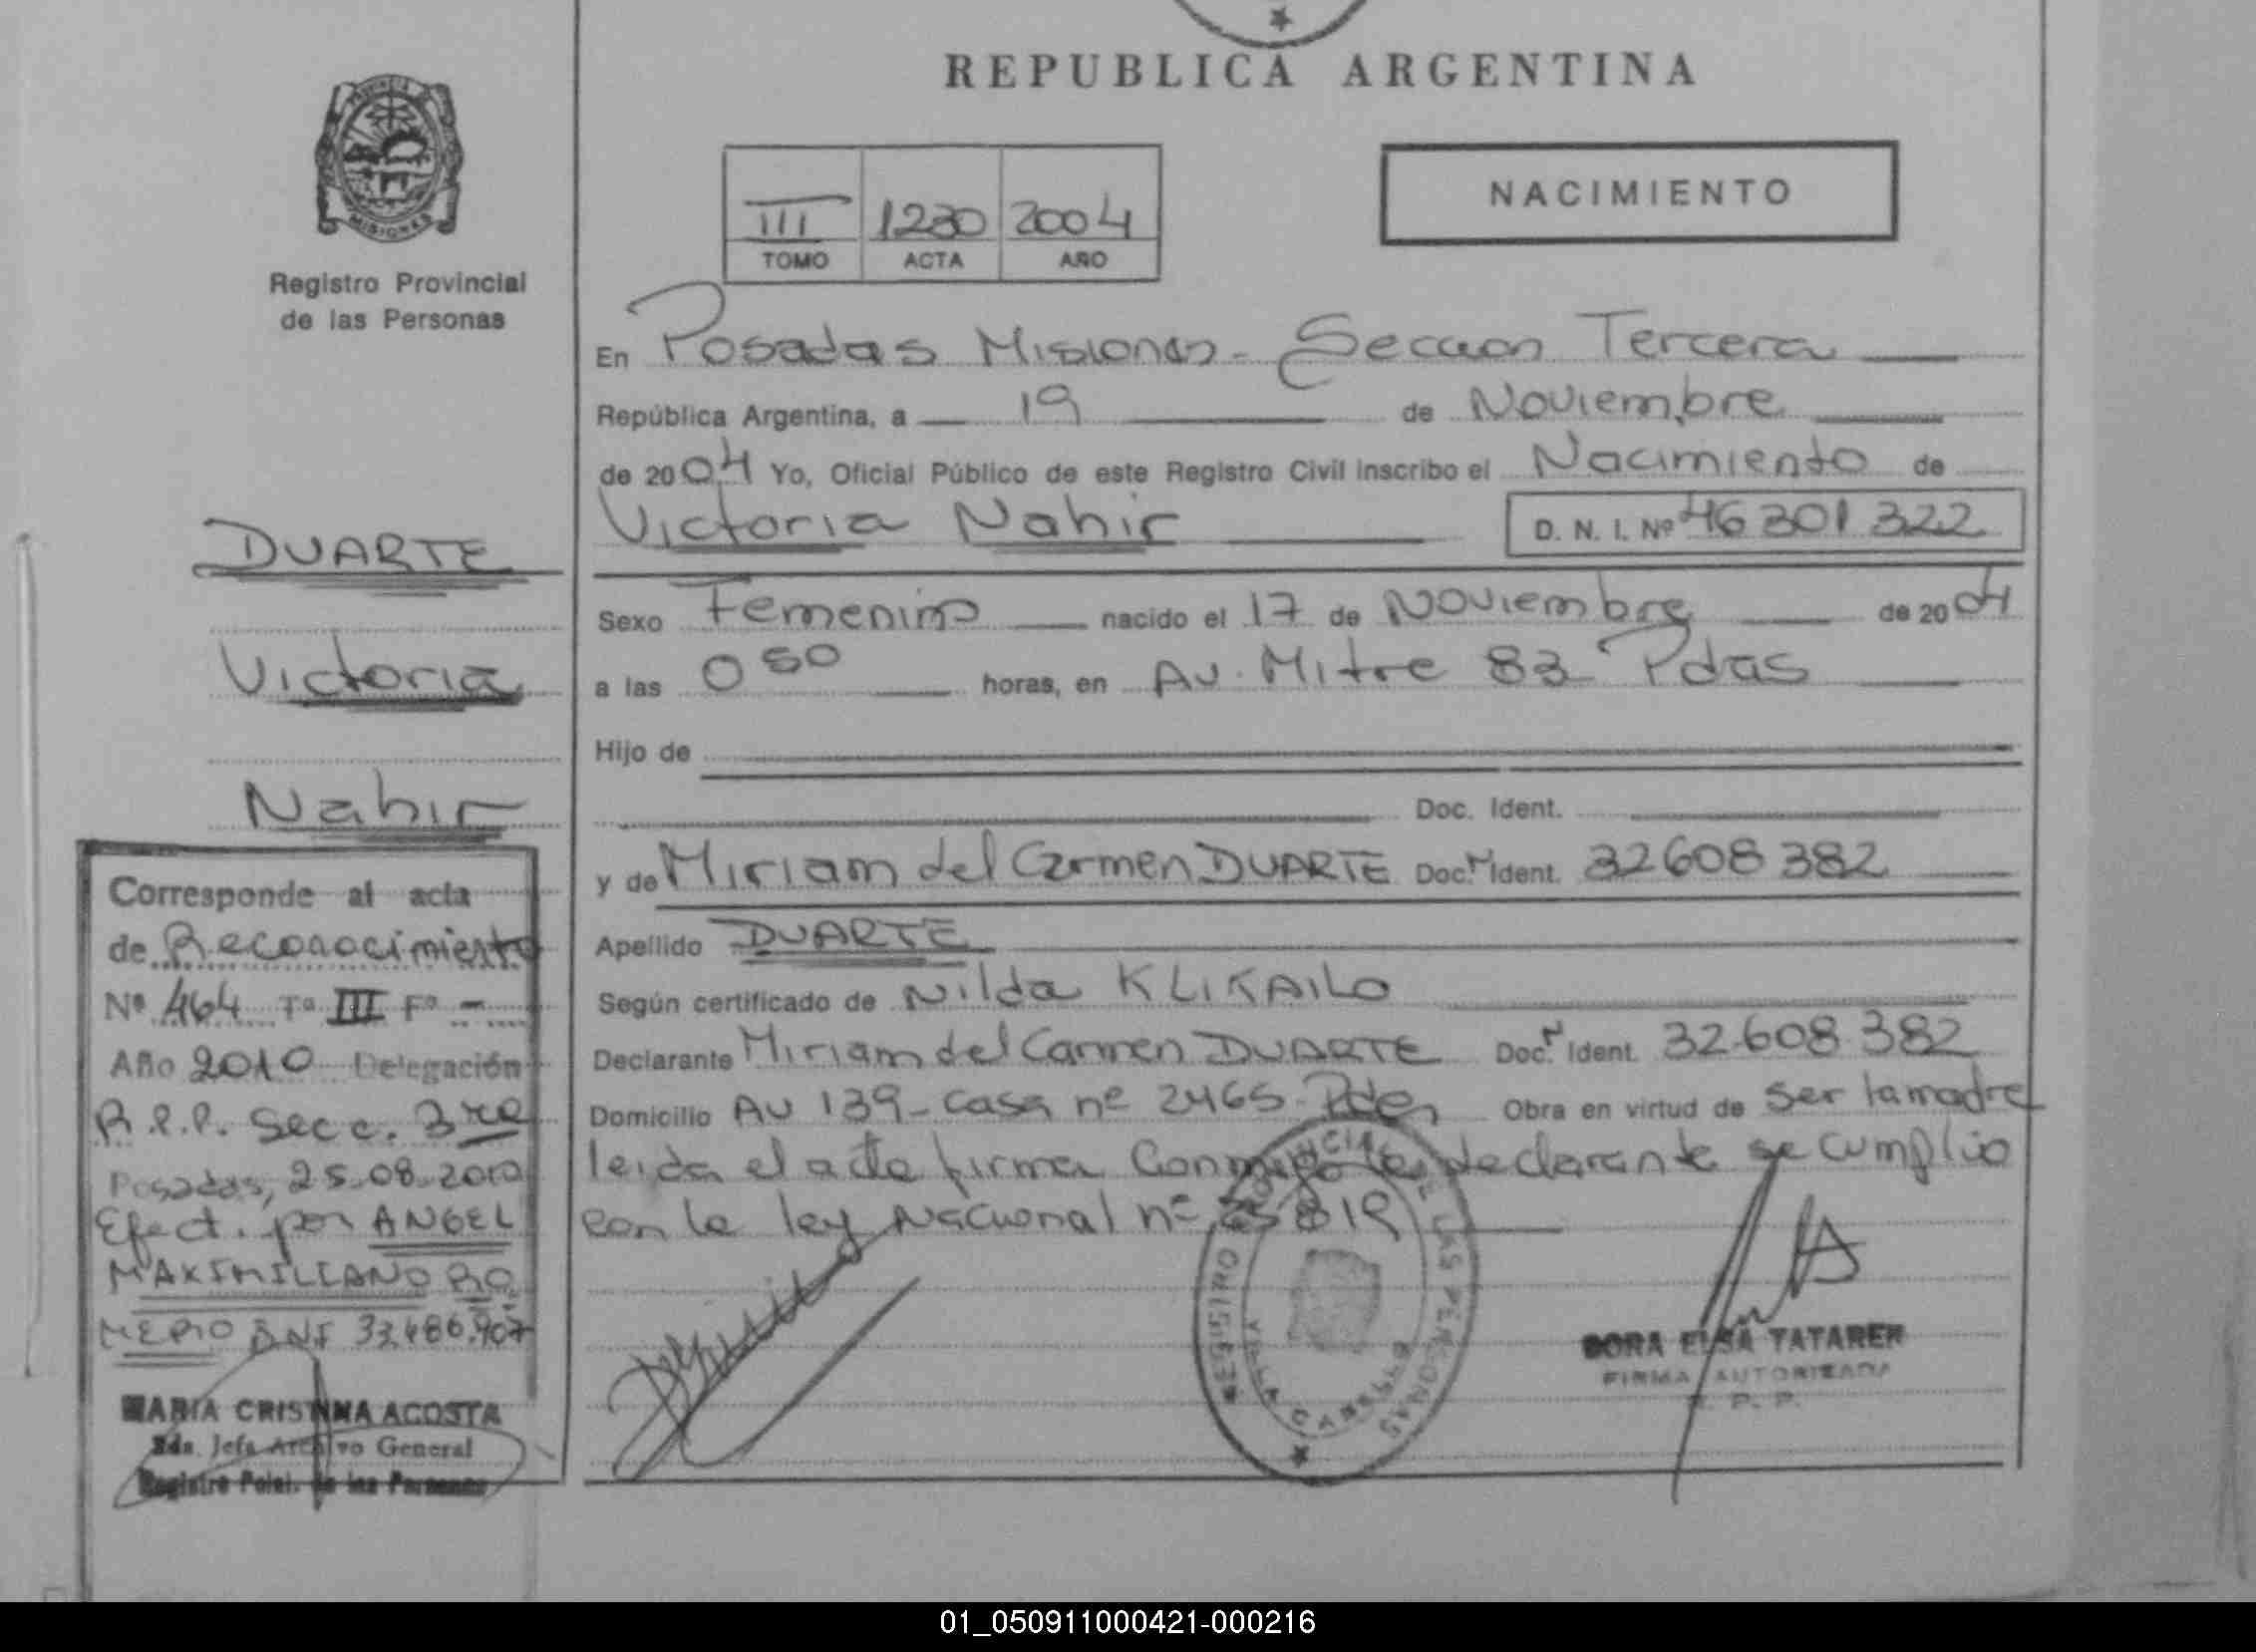 REPUBLICA ARGENTINA
PROVINCIA DE MISIONES
Registro Provincial
de las Personas
III 1230 2004
TOMO ACTA AÑO
NACIMIENTO
En Posadas Misiones - Sección Tercera
República Argentina, a 19 de Noviembre
de 2004 Yo, Oficial Público de este Registro Civil inscribo el Nacimiento de
Victoria Nahir D. N. I. Nº 46 301 322
Sexo Femenino nacido el 17 de Noviembre de 2004
a las 0 50 horas, en Av. Mitre 83 Pdas
Hijo de
Doc. Ident.
y de Miriam del Carmen DUARTE Doc. Ident. 32608 382
Apellido DUARTE
Según certificado de Nilda KLIKAILO
Declarante Miriam del Carmen DUARTE Doc. Ident. 32.608 382
Domicilio AV 139 - casa nº 2465 - Obra en virtud de ser la madre
leida el acta firma Conmigo la declarante se cumplio
con la ley Nacional nº 25819
DUARTE
Victoria
Nahir
Corresponde al acta
de Reconocimiento
Nº 464 Tº III Fº -
Año 2010 Delegación
R.P.P. Secc. 3ra
Posadas, 25.08.2010
Efect. por ANGEL
MAXIMILIANO RO
MERO DNI 33.486.907
MARIA CRISTINA ACOSTA
2da. Jefa Archivo General
Registro Pcial. de las Personas
REGISTRO PROVINCIAL DE LAS PERSONAS
VILLA CABELLO
DORA ELSA TATAREN
FIRMA AUTORIZADA
R. P. P.
01_050911000421-000216